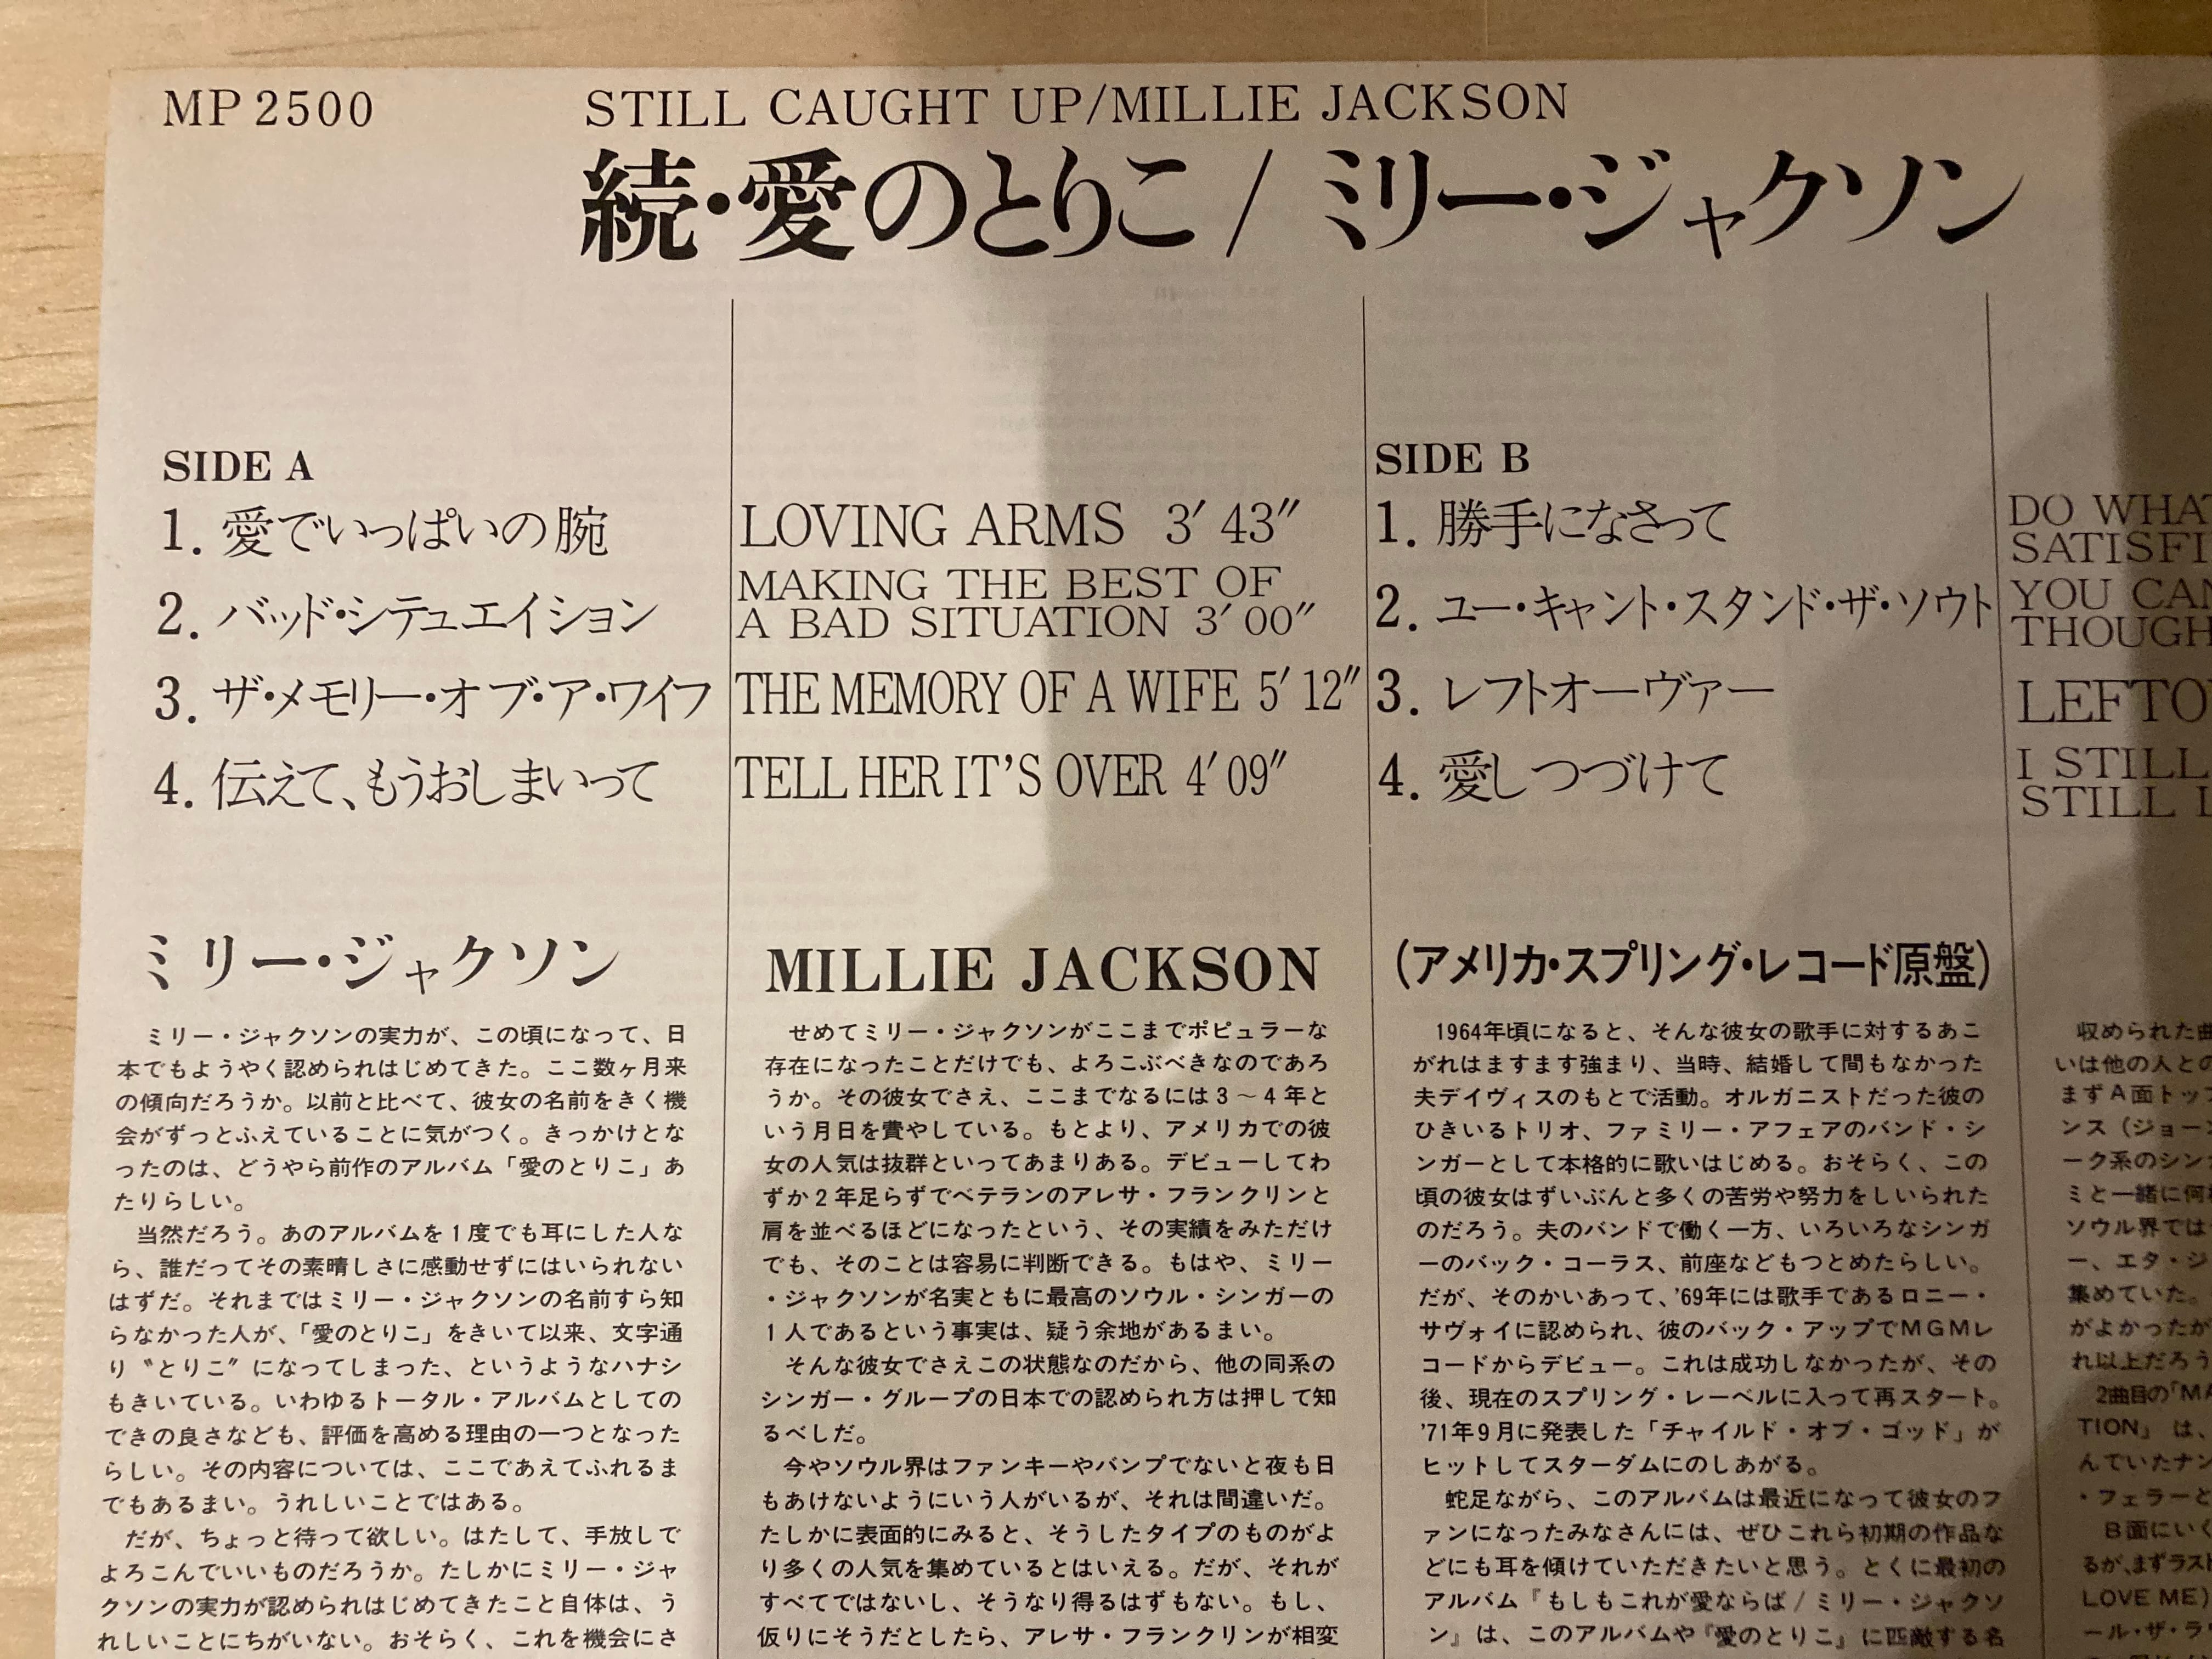 MP 2500
STILL CAUGHT UP/MILLIE JACKSON
続・愛のとりこ/ ミリー・ジャクソン
SIDE A
1. 愛でいっぱいの腕 LOVING ARMS 3′43″
2. バッド・シテュエイション MAKING THE BEST OF
A BAD SITUATION 3′00″
3. ザ・メモリー・オブ・ア・ワイフ THE MEMORY OF A WIFE 5′12″
4. 伝えて、もうおしまいって TELL HER IT'S OVER 4′09″
SIDE B
1. 勝手になさって DO WHAT
SATISFI
2. ユー・キャント・スタンド・ザ・ソウト YOU CAN
THOUGH
3. レフトオーヴァー LEFTO
4. 愛しつづけて I STILL
STILL L
ミリー・ジャクソン MILLIE JACKSON (アメリカ・スプリング・レコード原盤)
ミリー・ジャクソンの実力が、この頃になって、日
本でもようやく認められはじめてきた。ここ数ヶ月来
の傾向だろうか。以前と比べて、彼女の名前をきく機
会がずっとふえていることに気がつく。きっかけとな
ったのは、どうやら前作のアルバム「愛のとりこ」あ
たりらしい。
当然だろう。あのアルバムを1度でも耳にした人な
ら、誰だってその素晴しさに感動せずにはいられない
はずだ。それまではミリー・ジャクソンの名前すら知
らなかった人が、「愛のとりこ」をきいて以来、文字通
り〝とりこ〟になってしまった、というようなハナシ
もきいている。いわゆるトータル・アルバムとしての
できの良さなども、評価を高める理由の一つとなった
らしい。その内容については、ここであえてふれるま
でもあるまい。うれしいことではある。
だが、ちょっと待って欲しい。はたして、手放しで
よろこんでいいものだろうか。たしかにミリー・ジャ
クソンの実力が認められはじめてきたこと自体は、う
れしいことにちがいない。おそらく、これを機会にさ
せめてミリー・ジャクソンがここまでポピュラーな
存在になったことだけでも、よろこぶべきなのであろ
うか。その彼女でさえ、ここまでなるには3～4年と
いう月日を費やしている。もとより、アメリカでの彼
女の人気は抜群といってあまりある。デビューしてわ
ずか2年足らずでベテランのアレサ・フランクリンと
肩を並べるほどになったという、その実績をみただけ
でも、そのことは容易に判断できる。もはや、ミリー
・ジャクソンが名実ともに最高のソウル・シンガーの
1人であるという事実は、疑う余地があるまい。
そんな彼女でさえこの状態なのだから、他の同系の
シンガー・グループの日本での認められ方は押して知
るべしだ。
今やソウル界はファンキーやバンプでないと夜も日
もあけないようにいう人がいるが、それは間違いだ。
たしかに表面的にみると、そうしたタイプのものがよ
り多くの人気を集めているとはいえる。だが、それが
すべてではないし、そうなり得るはずもない。もし、
仮りにそうだとしたら、アレサ・フランクリンが相変
1964年頃になると、そんな彼女の歌手に対するあこ
がれはますます強まり、当時、結婚して間もなかった
夫デイヴィスのもとで活動。オルガニストだった彼の
ひきいるトリオ、ファミリー・アフェアのバンド・シ
ンガーとして本格的に歌いはじめる。おそらく、この
頃の彼女はずいぶんと多くの苦労や努力をしいられた
のだろう。夫のバンドで働く一方、いろいろなシンガ
ーのバック・コーラス、前座などもつとめたらしい。
だが、そのかいあって、'69年には歌手であるロニー・
サヴォイに認められ、彼のバック・アップでMGMレ
コードからデビュー。これは成功しなかったが、その
後、現在のスプリング・レーベルに入って再スタート。
'71年9月に発表した「チャイルド・オブ・ゴッド」が
ヒットしてスターダムにのしあがる。
蛇足ながら、このアルバムは最近になって彼女のフ
ァンになったみなさんには、ぜひこれら初期の作品な
どにも耳を傾けていただきたいと思う。とくに最初の
アルバム『もしもこれが愛ならば/ミリー・ジャクソ
ン』は、このアルバムや『愛のとりこ』に匹敵する名
収められた曲
いは他の人との
まずA面トップ
ンス（ジョー
ーク系のシン
ミと一緒に何
ソウル界では
ー、エタ・ジ
集めていた。
がよかったが
れ以上だろう
2曲目の「MA
TION」は、
んでいたナン
・フェラーと
B面にいく
るが、まずラスト
LOVE ME)
ール・ザ・ラ